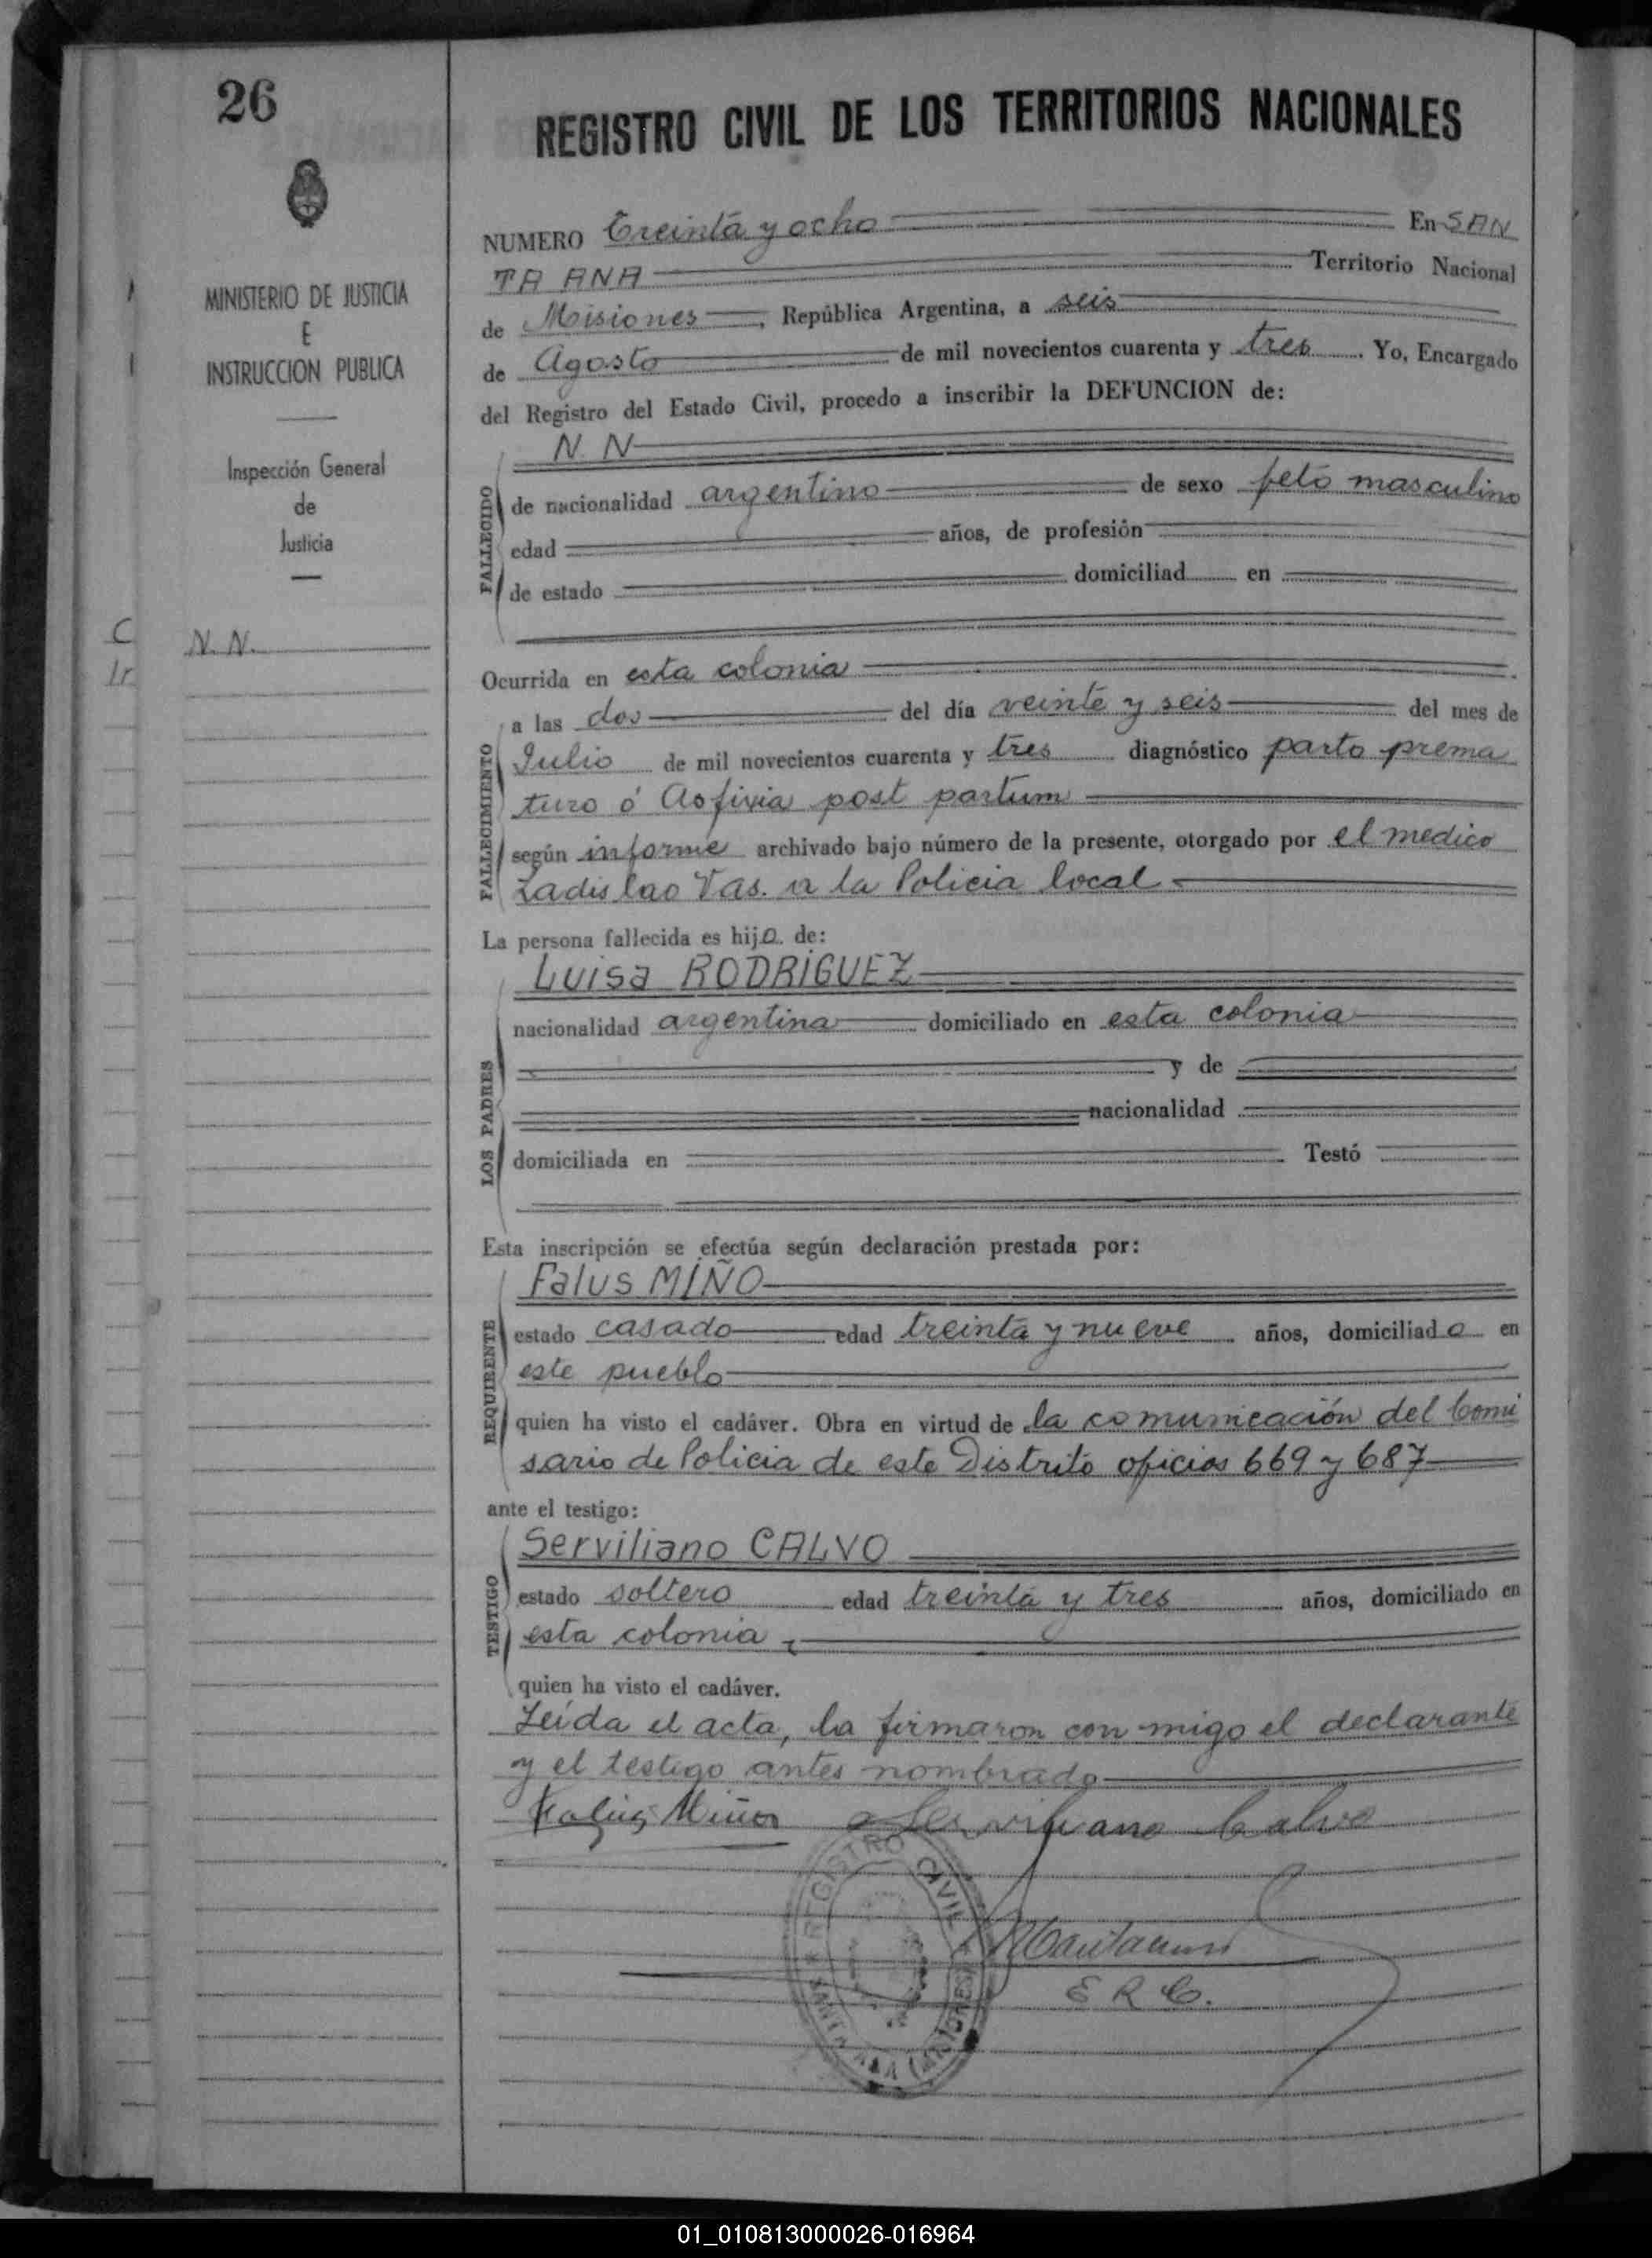 26
REGISTRO CIVIL DE LOS TERRITORIOS NACIONALES
MINISTERIO DE JUSTICIA
E
INSTRUCCION PUBLICA
Inspección General
de
Justicia
C
Ir
N. N.
NUMERO Treinta y ocho En SAN
TA ANA Territorio Nacional
de Misiones, República Argentina, a seis
de Agosto de mil novecientos cuarenta y tres. Yo, Encargado
del Registro del Estado Civil, procedo a inscribir la DEFUNCION de:
FALLECIDO
N. N
de nacionalidad argentino de sexo feto masculino
edad años, de profesión
de estado domiciliad en
Ocurrida en esta colonia
FALLECIMIENTO
a las dos del día veinte y seis del mes de
Julio de mil novecientos cuarenta y tres diagnóstico parto prema
turo ó Asfixia post partum
según informe archivado bajo número de la presente, otorgado por el medico
Ladislao Vas. a la Policia local
La persona fallecida es hijo de:
LOS PADRES
Luisa RODRIGUEZ
nacionalidad argentina domiciliado en esta colonia
y de
nacionalidad
domiciliada en Testó
Esta inscripción se efectúa según declaración prestada por:
REQUIRENTE
Falus MIÑO
estado casado edad treinta y nueve años, domiciliado en
este pueblo
quien ha visto el cadáver. Obra en virtud de la comunicación del Comi
sario de Policia de este Distrito oficios 669 y 687
ante el testigo:
TESTIGO
Serviliano CALVO
estado soltero edad treinta y tres años, domiciliado en
esta colonia
quien ha visto el cadáver.
Leída el acta, la firmaron con migo el declarante
y el testigo antes nombrado
Falus Miño Serviliano Calvo
REGISTRO CIVIL
SANTA ANA (MISIONES)
E R C.
01_010813000026-016964